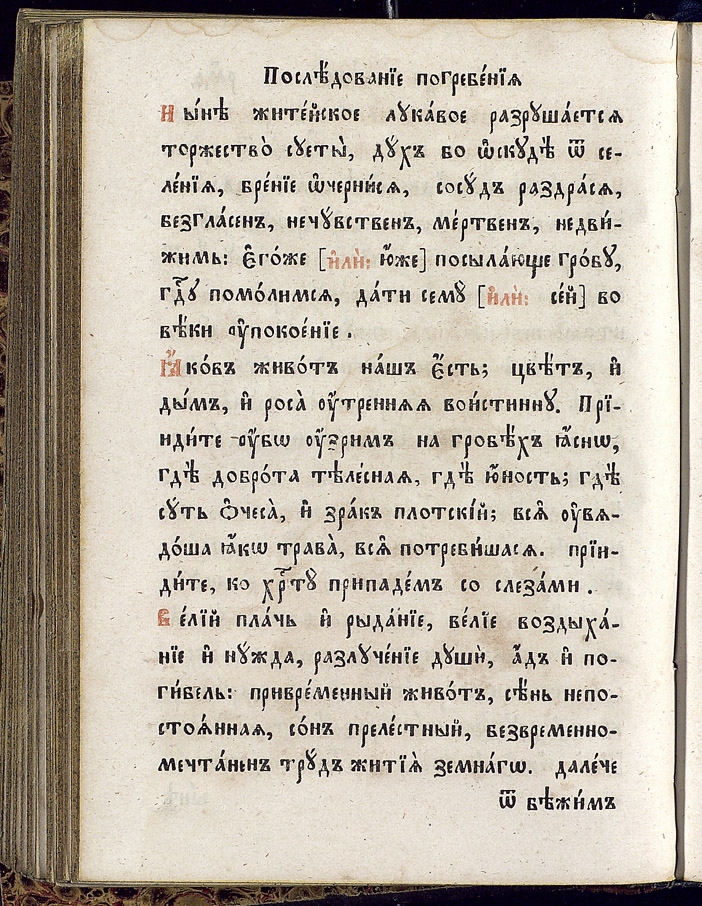 Послѣ́дованїе погребе́нїѧ
Ны́нѣ жите́йское лꙋка́вое разрꙋша́етсѧ
торжество̀ сꙋеты̀, дꙋ́хъ бо ѡ҆скꙋдѣ̀ ѿ се-
ле́нїѧ, бре́нїе ѡ҆черни́сѧ, сосꙋ́дъ раздра́сѧ,
безгла́сенъ, нечꙋ́вственъ, ме́ртвенъ, недви́-
жимь: є҆го́же [и҆лѝ: ю҆́же] посыла́юще гро́бꙋ,
гдⷭ҇ꙋ помо́лимсѧ, да́ти семꙋ̀ [и҆лѝ: се́й] во
вѣ́ки ᲂу҆покое́нїе.
Ꙗ҆ко́въ живо́тъ на́шъ є҆́сть; цвѣ́тъ, и҆
ды́мъ, и҆ роса̀ ᲂу҆́тренняѧ вои́стиннꙋ. Прїи-
ди́те ᲂу҆̀бѡ ᲂу҆́зримъ на гробѣ́хъ ꙗ҆́снѡ,
гдѣ̀ добро́та тѣле́снаѧ, гдѣ̀ ю҆́ность; гдѣ̀
сꙋ́ть ѻ҆чеса̀, и҆ зра́къ плотскі́й; всѧ̑ ᲂу҆вѧ-
до́ша ꙗ҆́кѡ трава̀, всѧ̑ потреби́шасѧ. прїи-
ди́те, ко хрⷭ҇тꙋ̀ припаде́мъ со слеза́ми.
Ве́лїй пла́чь и҆ рыда́нїе, ве́лїе воздыха́-
нїе и҆ нꙋ́жда, разлꙋче́нїе дꙋшѝ, а҆́дъ и҆ по-
ги́бель: привре́менный живо́тъ, сѣ́нь непо-
стоѧ́ннаѧ, со́нъ преле́стный, безвре́менно-
мечта́ненъ трꙋ́дъ житїѧ̀ земна́гѡ. дале́че
ѿ бѣжи́мъ